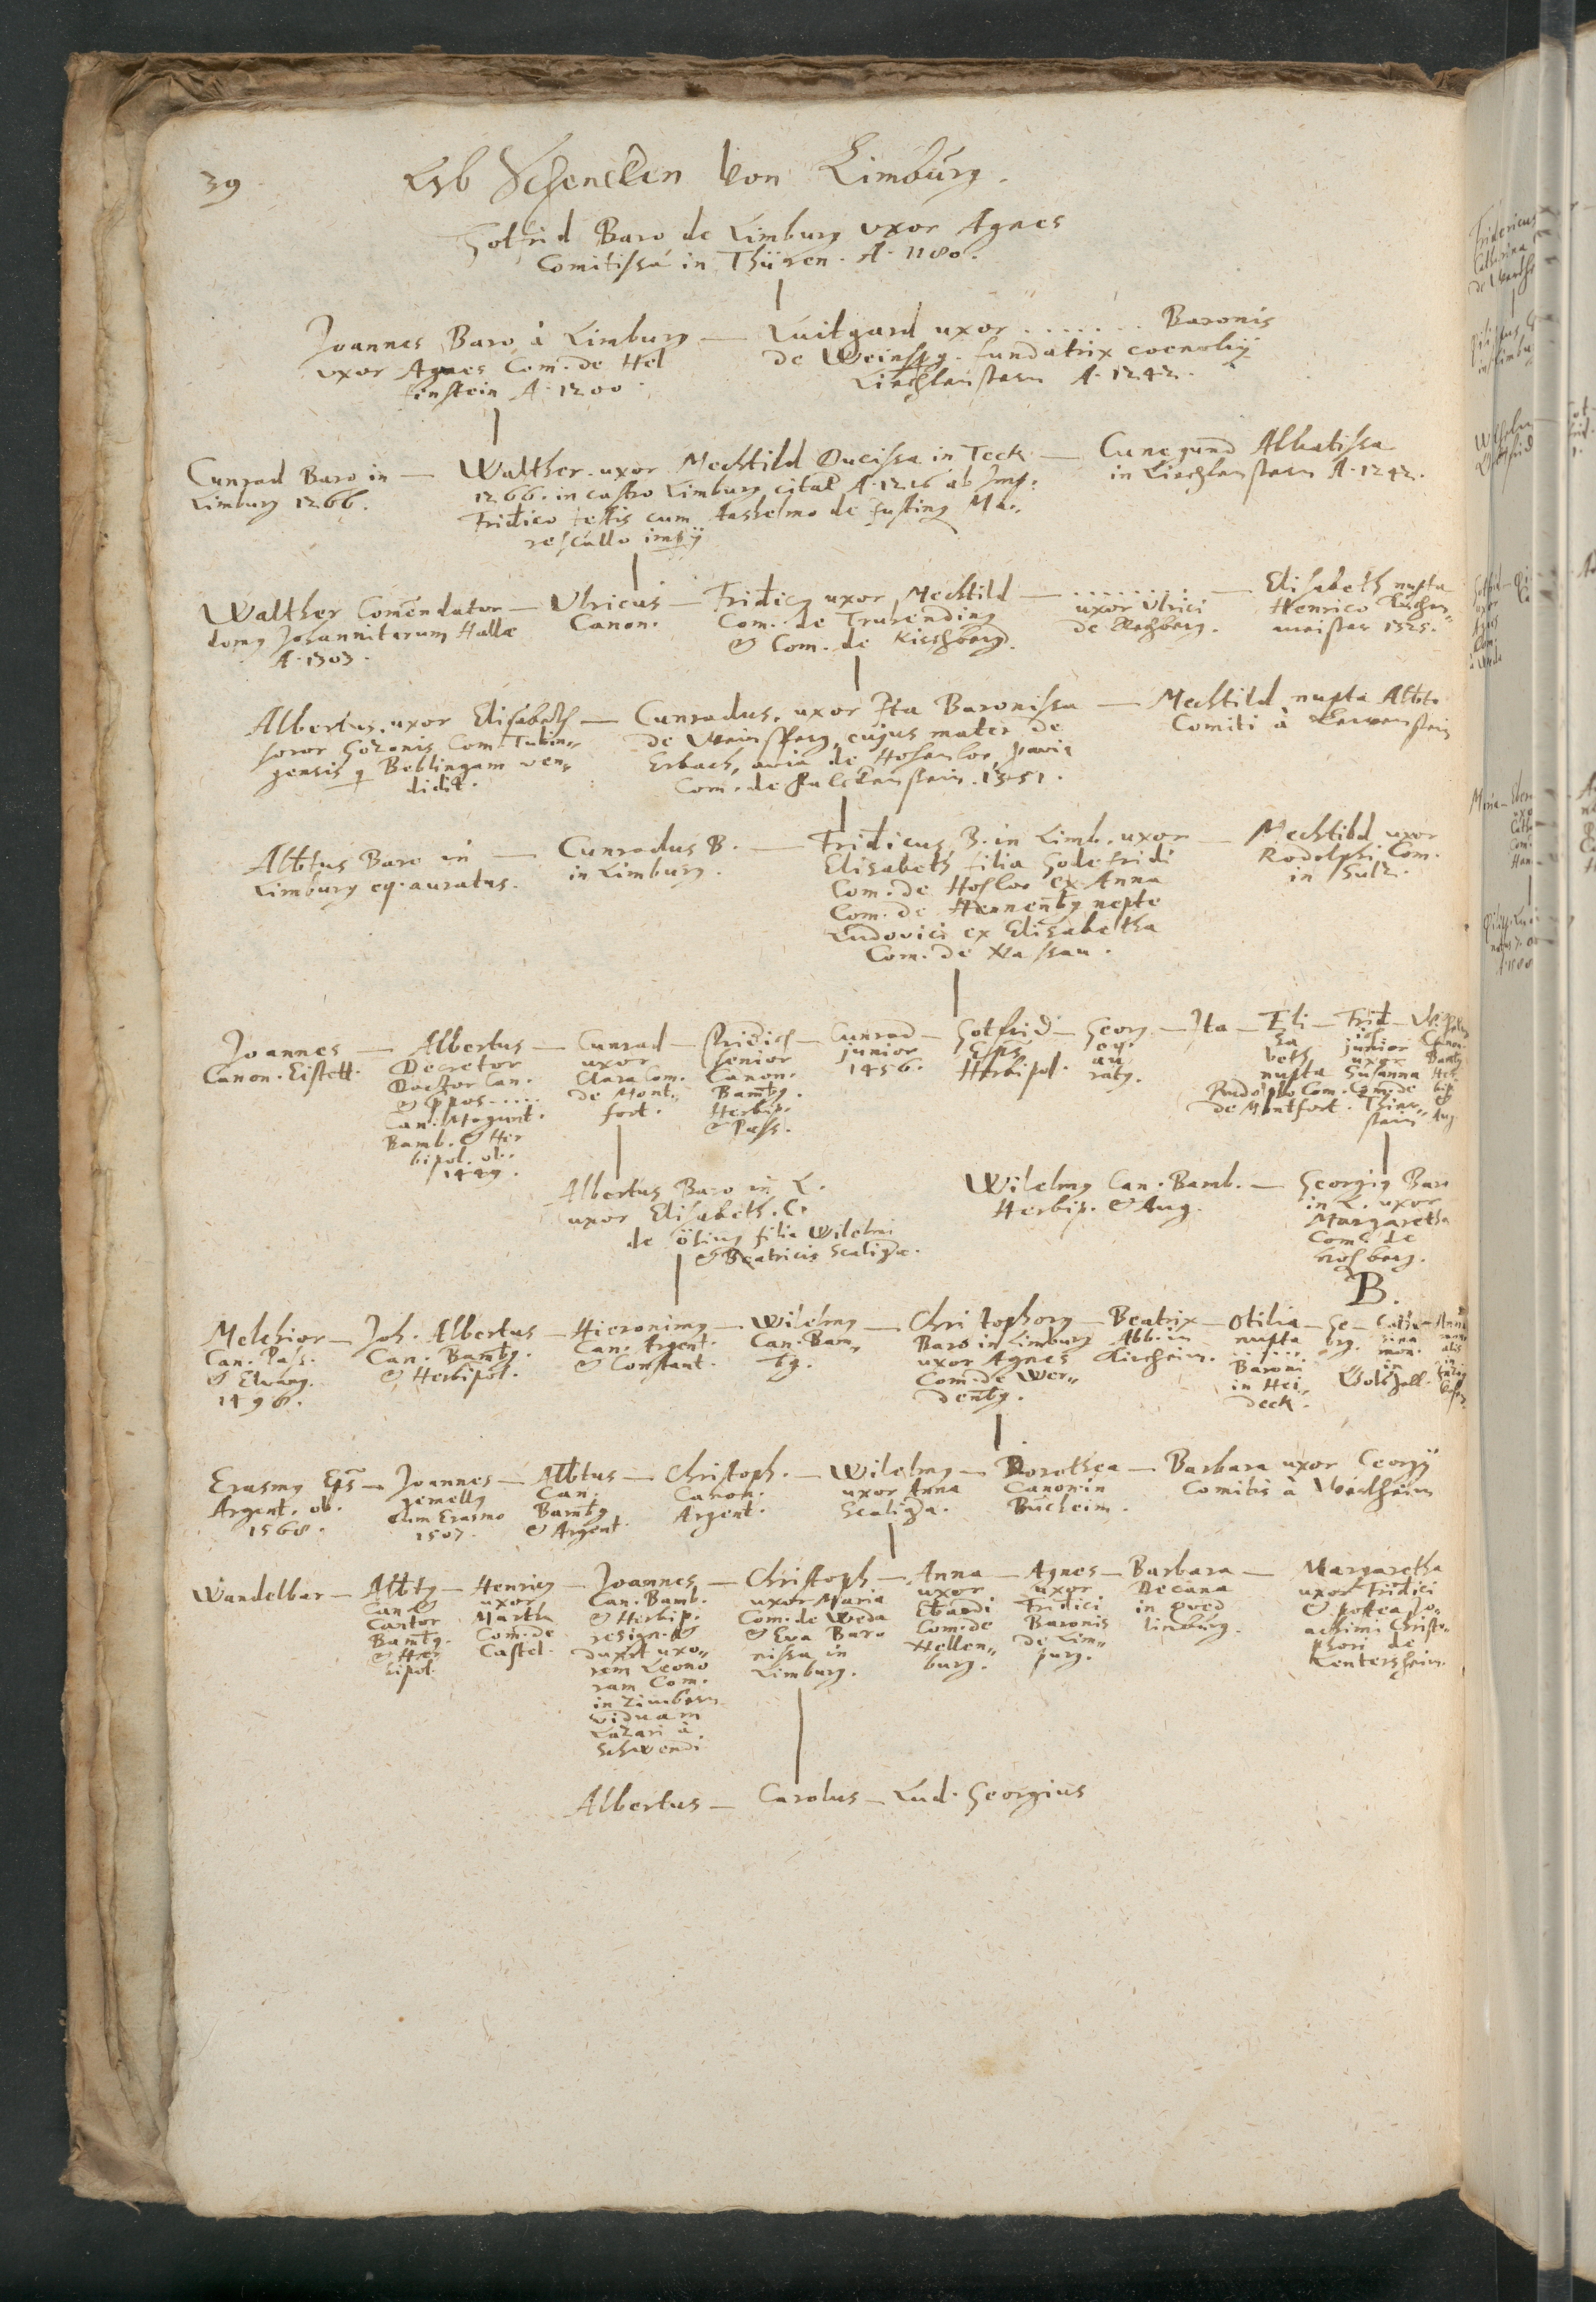 39
Erb Schencken von Limburg.
Gotfrid Baro de Limburg uxor Agnes
Comitissa in Thüren. A. 1180.
Joannes Baro à Limburg —
uxor Agnes Com. de Hel
fenstein A. 1200
Luitgard uxor ....... Baronis
de Weinspg. fundatrix coenobij
Liechtenstern A. 1242.
Cunrad Baro in —
Limburg 1266.
Walther. uxor Mechtild Ducissa in Teck —
1266. in castro Limburg citat A. 1216 ab Imp.
Fridico testis cum Anshelmo de Justing Ma„
rescallo impij
Cunegund Abbatissa
in Liechtenstern A. 1242.
Walther Comendator —
domg Johannitarum Hallæ
A. 1303.
Ulricus —
Canon.
Fridicg uxor Mechtild —
Com. de Truhending
& Com. de Kirchberg.
........ —
uxor Ulrici
de Rechberg.
Elisabeth nupta
Henrico Kuchen„
meister 1325.
Albertus. uxor Elisabeth —
soror Gozonis Com. Tubin„
gensis q Beblingam ven„
didit.
Cunradus. uxor Ita Baronissa —
de Weinsperg, cujus mater de
Erbach, avia de Hohenloe,
Com. de Falckenstein. 1351.
Mechtild nupta Albto
Comiti à Lewenstein
Albtus Baro in —
Limburg eq. auratus.
Cunradus B. —
in Limburg.
Fridicus B. in Limb. uxor —
Elisabeth filia Godefridi
Com. de Hohloe ex Anna
Com. de Hennenbg nepte
Ludovici ex Elisabetha
Com. de Nassau.
Mechtild uxor
Rodolphi Com.
in Sulz.
Joannes —
Canon. Eistett.
Albertus —
Decretor
Doctor Can.
& ppos.....
Can. Mogunt.
Bamb. & Her
bipol. ob.
1449.
Cunrad —
uxor
Clara Com.
de Mont„
fort.
Fridich —
senior
Canon.
Bambg.
Herbip.
& Pass.
Cunrad —
junior
1456.
Gotfrid —
Eps
Herbipol.
Georg —
eq.
au
ratg.
Ita —
Eli —
sa
beth
nupta
Rudolpho Com.
de Montfort.
Frid —
ich
junior
uxor
Susanna
Com. de
Thier„
stein
Canon.
Bambg
Her
bip
&
Aug
Albertus Baro in L.
uxor Elisabeth. C.
de Öting filia Wilelmi
& Beatricis Scaligæ.
Wilelmg Can. Bamb. —
Herbip. & Aug.
Georgig Baro
in L. uxor
Margaretha
Com. de
Hohberg.
B.
Melchior —
Can. Pass.
& Elwang.
1496.
Joh. Albertus —
Can. Bambg.
& Herbipol.
Hieronimg —
Can. Argent.
& Constant.
Wilelmg —
Can. Bam„
bg.
Christophorg —
Baro in Limburg
uxor Agnes
Com. de Wer„
denbg.
Beatrix —
Abb. in
Kircheim.
Otilia —
nupta
.....
Baroni
in Hei„
deck.
Ge —
org.
Catha —
rina
mon.
in
Anna
Erasmg Eps —
Argent. ob.
1568.
Joannes —
gemellg
cum Erasmo
1507.
Albtus —
Can.
Bambg
& Argent
Christoph. —
Canon.
Argent.
Wilelmg —
uxor Anna
Scaligra.
Dorothea —
Canon. in
Bucheim.
Barbara uxor Georgij
Comitis à Wertheim
Wandelbar —
Albtg —
Can &
Cantor
Bambg.
& Her
bipol.
Henricg —
uxor
Martha
Com. de
Castel.
Joannes —
Can. Bamb.
& Herbip.
resign. &
duxit uxo„
rem Leono
ram Com.
in Zimbern
viduam
Lazari à
Schwendi
Christoph —
uxor Maria
Com. de Weda
& Eva Baro
nissa in
Limburg.
Anna —
uxor
Ebardi
Com. de
Hellen„
burg.
Agnes —
uxor
Fridici
Baronis
de Lim„
purg.
Barbara —
Decana
in qved
linburg.
Margaretha
uxor Fridici
& postea Jo„
achimi Christo„
phori de
Zentersheim.
Albertus — Carolus — Lud. Georgius